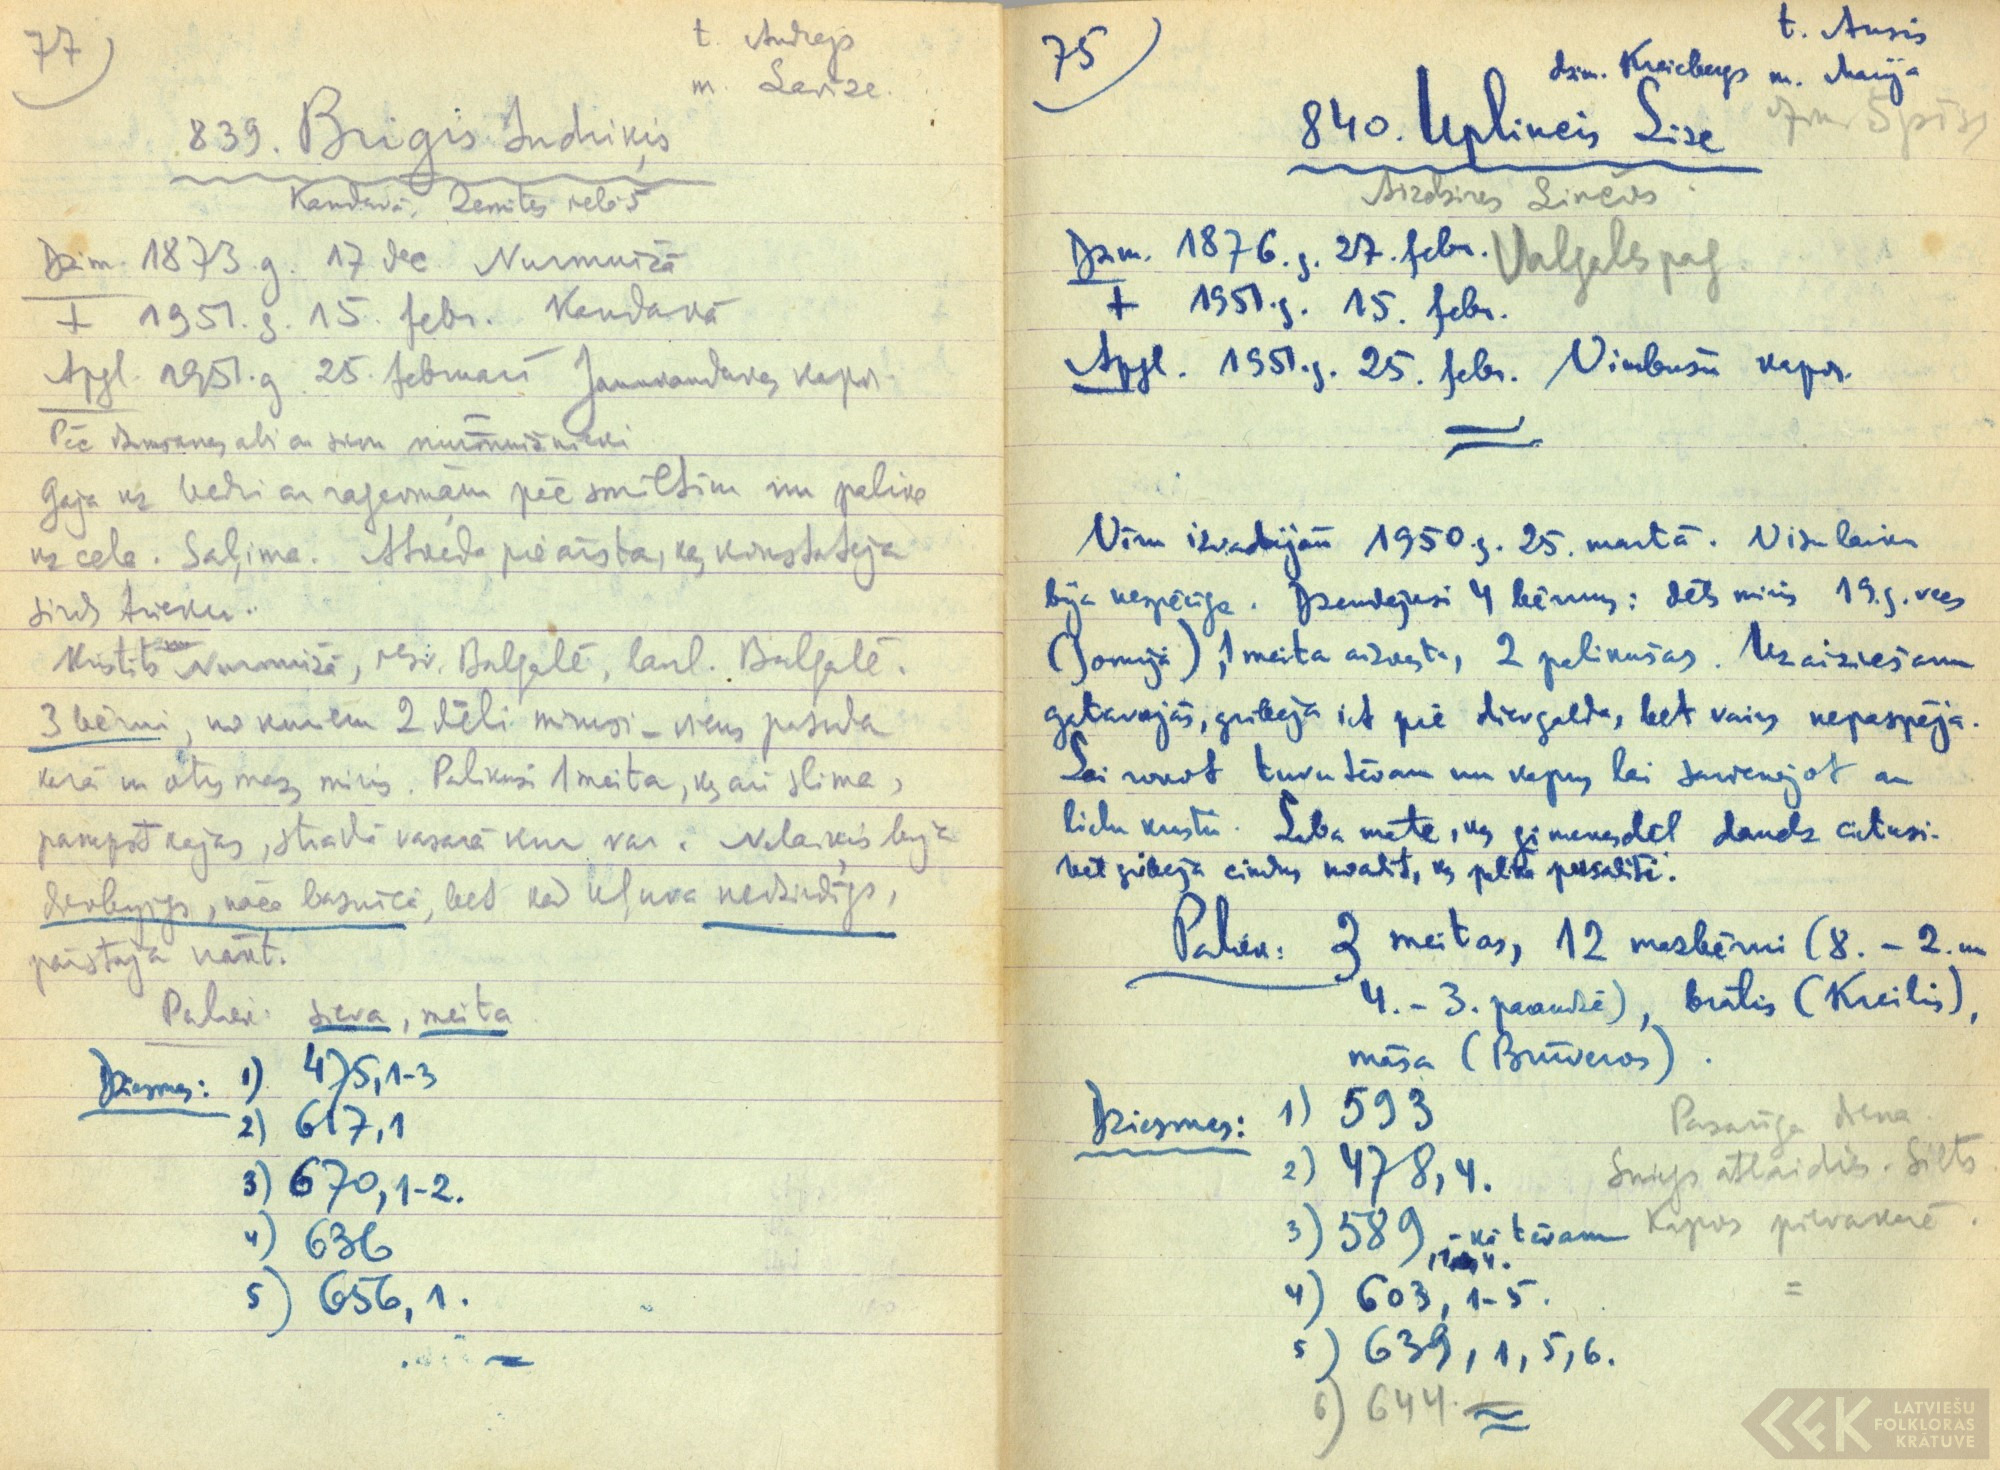 77)
t. Andrejs
m. Lavize.
839. Briģis Indriķis
Kandavā, Zemītes ielā 5
Dzim. 1873.g. 17 dec Nurmuižā
+ 1951.g. 15. febr. Kandavā
Apgl. 1951.g. 25. februarī Jaunkandavas kapos.
Pēc abi ar sievu nurmuižnieki
Gāja uz ar ragavniņām pēc smiltīm un palika
uz ceļa. Saļima. Atveda pie ārsta, kas konstatēja
sirds trieku.
Kristīts Nurmuižā, iesv. Balgalē, laul. Balgalē.
3 bērni, no kuriem 2 dēli miruši - viens pasaules
karā un otrs mazs miris. Palikusi 1 meita, kas arī slima,
pampst kājas, strādā vasarā kur var. Nelaiķis bija
dievbijīgs, nāca baznīcā, bet kad kļuva nedzirdīgs,
pārstāja nākt.
Paliek: sieva, meita
Dziesmas: 1) 475,1-3
2) 617,1
3) 670,1-2.
4) 636
5) 656, 1.
75)
t. Ansis
dzim. Kreicbergs m. Marija
dzim. Spīss
840. Uplincis Lize
Aizdzires Lincēs
Dzim. 1876.g. 27. febr. Valgales pag.
+ 1951.g. 15. febr.
Apgl. 1951.g. 25. febr. Vimbušu kapos.
Vīru izvadījām 1950.g. 25. martā. Visu laiku
bija nespēcīga. Dzemdējusi 4 bērnus: dēls miris 19.g. vecs
(Somijā), 1 meita aizvesta, 2 palikušas. Uz aiziešanu
gatavojās, gribēja iet pie dievgalda, bet vairs nepaspēja.
Lai rokot tuvu tēvam un kapus lai savienojot ar
lielu krustu. Laba māte, kas ģimenes dēļ daudz cietusi.
bet gribēja cimdus noadīt, kas palika pusadīti.
Paliek: 3 meitas, 12 mazbērni (8. - 2. un
4. - 3. paaudzē), brālis (Kreilis),
māsa (Brūveros).
Dziesmas: 1) 593
2) 478,4.
3) 589, - kā tēvam
4) 603, 1-5.
5) 639, 1, 5, 6.
6) 644.
Pavasarīga diena.
Sniegs atlaidies. Silts.
Kapos pievakarē.
=
LATVIEŠU
FOLKLORAS
KRĀTUVE